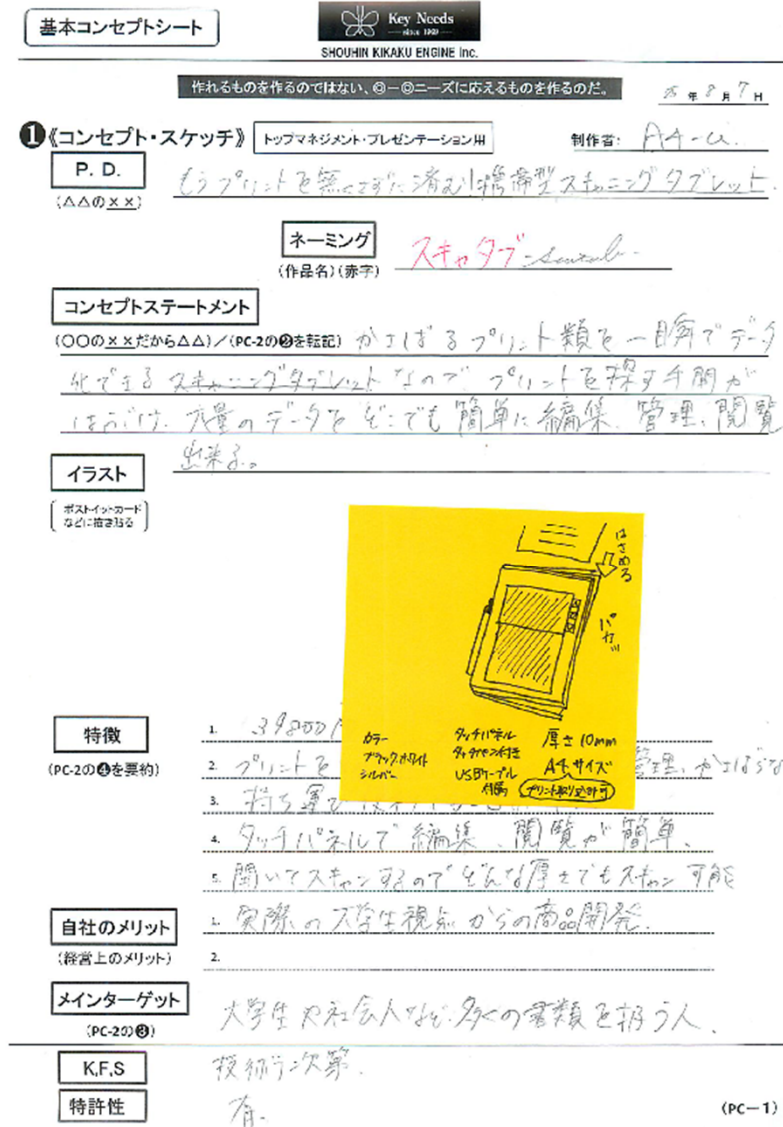 基本コンセプトシート
Key Needs
since 1989
SHOUHIN KIKAKU ENGINE Inc.
作れるものを作るのではない、◎ー◎ニーズに応えるものを作るのだ。
年 8月 7日
❶《コンセプト・スケッチ》 トップマネジメント・プレゼンテーション用 制作者: A4-u.
P. D.
(△△の××)
もうプリントを無くさずに済む!携帯型スキャニングタブレット.
ネーミング
(作品名)(赤字)
スキャタブ
コンセプトステートメント
(○○の××だから△△)/(PC-2の❷を転記) かさばるプリント類を一瞬でデータ
化できるスキャニングタブレットなので、プリントを探す手間が
はぶけ、大量のデータをどこでも簡単に編集、管理、閲覧
出来る。
イラスト
ポストイットカード
などに描き貼る
はさめる
パカッ
カラー
ブラック、ホワイト
シルバー
タッチパネル
タッチペン付き
USBケーブル
付属
厚さ 10mm
A4サイズ
プリント取り込み可
特徴
(PC-2の❹を要約)
1. 39800
2. プリントを 管理、かさばらな
3. 持ち運び
4. タッチパネルで編集、閲覧が簡単、
5. 開いてスキャンするのでどんな厚さでもスキャン可能
自社のメリット
(経営上のメリット)
1. 実際の大学生視点からの商品開発.
2.
メインターゲット
(PC-2の❸)
大学生や社会人など、多くの書類を扱う人.
K,F,S
技術力次第.
特許性
有.
(PC－1)